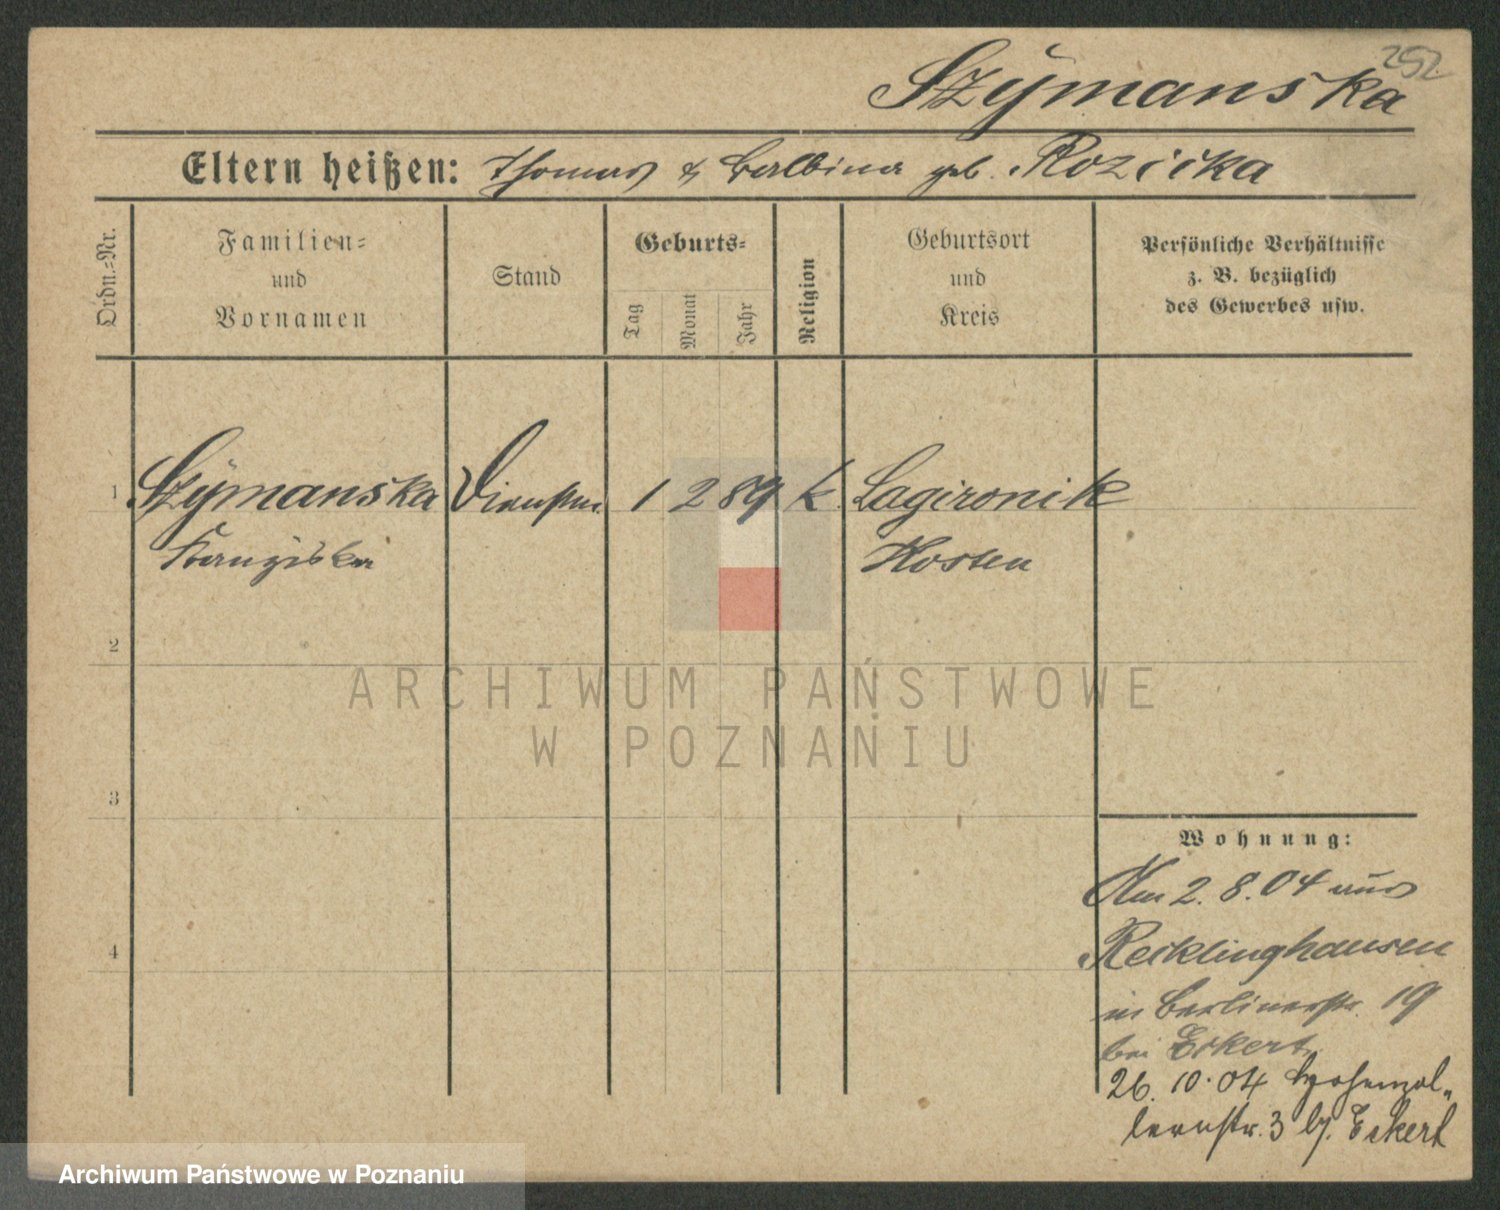 252
Szymanska
Eltern heißen: Thomas & Balbina geb. Rozička
Ordn.-Nr.
Familien-
und
Vornamen
Stand
Geburts-
Tag
Monat
Jahr
Religion
Geburtsort
und
Kreis
Persönliche Verhältnisse
z. B. bezüglich
des Gewerbes usw.
1 Szymanska Dienstm. 1 2 89 k. Lagironik
Franziska Kosten
2
ARCHIWUM PAŃSTWOWE
W POZNANIU
3
Wohnung:
Am 2. 8. 04 aus
4
Recklinghausen
in Berlinerstr. 19
bei Eckert
26. 10. 04 Hohenzol-
lernstr. 3 b/. Eckert
Archiwum Państwowe w Poznaniu